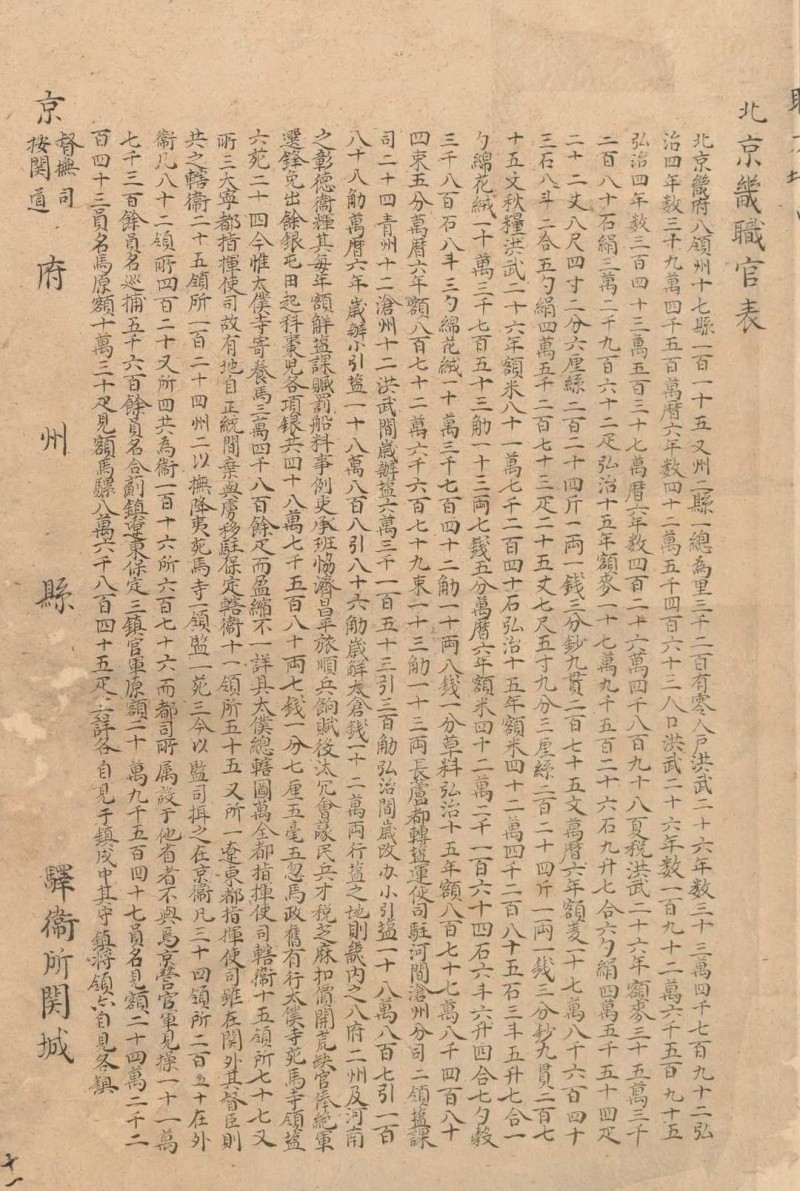 北京畿職官表
北京畿府八領州十七縣一百一十五又州二縣一總為里三千二百有零入戶洪武二十六年数三十三萬四千七百九十二弘
治四年数三十九萬四千五百萬曆六年数四十二萬五千四百六十三八口洪武二十六年数一百九十二萬六千五百九十五
弘治四年数三百四十三萬五百三十七萬曆六年数四百二十六萬四千八百九十八夏税洪武二十六年額麥三十五萬三千
二百八十石絹三萬二千九百六十二疋弘治十五年額麥一十七萬九千五百二十六石九升七合六勺絹四萬五千五十四疋
二十二丈八尺四寸二分六厘絲二百二十四斤一両一銭三分鈔九貫二百七十五文萬曆六年額麦二十七萬八千六百四十
三石八斗二合五勺絹四萬五千二百七十三疋二十五丈七尺五寸九分三厘絲二百二十四斤一両一錢三分鈔九貫二百七
十五文秋糧洪武二十六年額米八十一萬七千二百四十石弘治十五年額米四十二萬四千二百八十五石三斗五升七合一
勺綿花絨一十萬三千七百五十三觔一十三両七銭五分萬曆六年額米四十二萬二千一百六十四石六斗六升四合七勺穀
三千八百石八斗三勺綿花絨一十萬三千七百四十二觔一十両八銭一分草料弘治十五年額八百七十七萬八千四百八十
四束五分萬曆六年額八百七十二萬六千六百七十九束一十三觔一十三両長蘆都轉塩運使司駐河間滄州分司二領塩課
司二十四青州十二滄州十二洪武間歲辦塩六萬三千一百五十三引三百觔弘治間歲改办小引塩一十八萬八百七引一百
八十八觔萬曆六年歲辦小引塩一十八萬八百八引八十六觔歲觧太倉銭一十二萬両行塩之地則畿内之八府二州及河南
之彰德衞輝其每年額觧塩課贓罰船料事例吏承班恊濟昌平旅順兵餉賦役汰冗會議民兵才税芝麻扣價開荒缺官俸絶軍
選鋒免出餘銀屯田起科棗児各項銀共四十八萬七千五百八十両七銭一分七厘五毫五忽馬政舊有行太僕寺苑馬寺領監
六苑二十四今惟太僕寺寄養馬三萬四千八百餘疋而盈縮不一詳具太僕總轄圖萬全都指揮使司轄衞十五領所七十七又
所三大寧都指揮使司故有地自正統間棄與虜移駐保定轄衞十一領所五十五又所一遼東都指揮使司雖在関外其督臣則
共之轄衞二十五領所一百二十四州二以撫降夷苑馬寺一領監一苑三今以監司揖之在京衞凡三十四領所二百五十在外
衞凡八十二領所四百二十又所四共為衞一百十六所六百七十六而都司所属設于他省者不與焉京營官軍見操一十一萬
七千三百餘員名巡捕五千六百餘員名合薊鎮遼東保定三鎮官軍原額二十萬九千五百四十七員名見額二十四萬二千二
百四十三員名馬原額十萬三十疋見額馬騾八萬六千八百四十五疋詳各自見于鎮戍中其守鎮将領亦自見各鎮
京 督撫司 按関道 府 州 縣 驛衞所関城